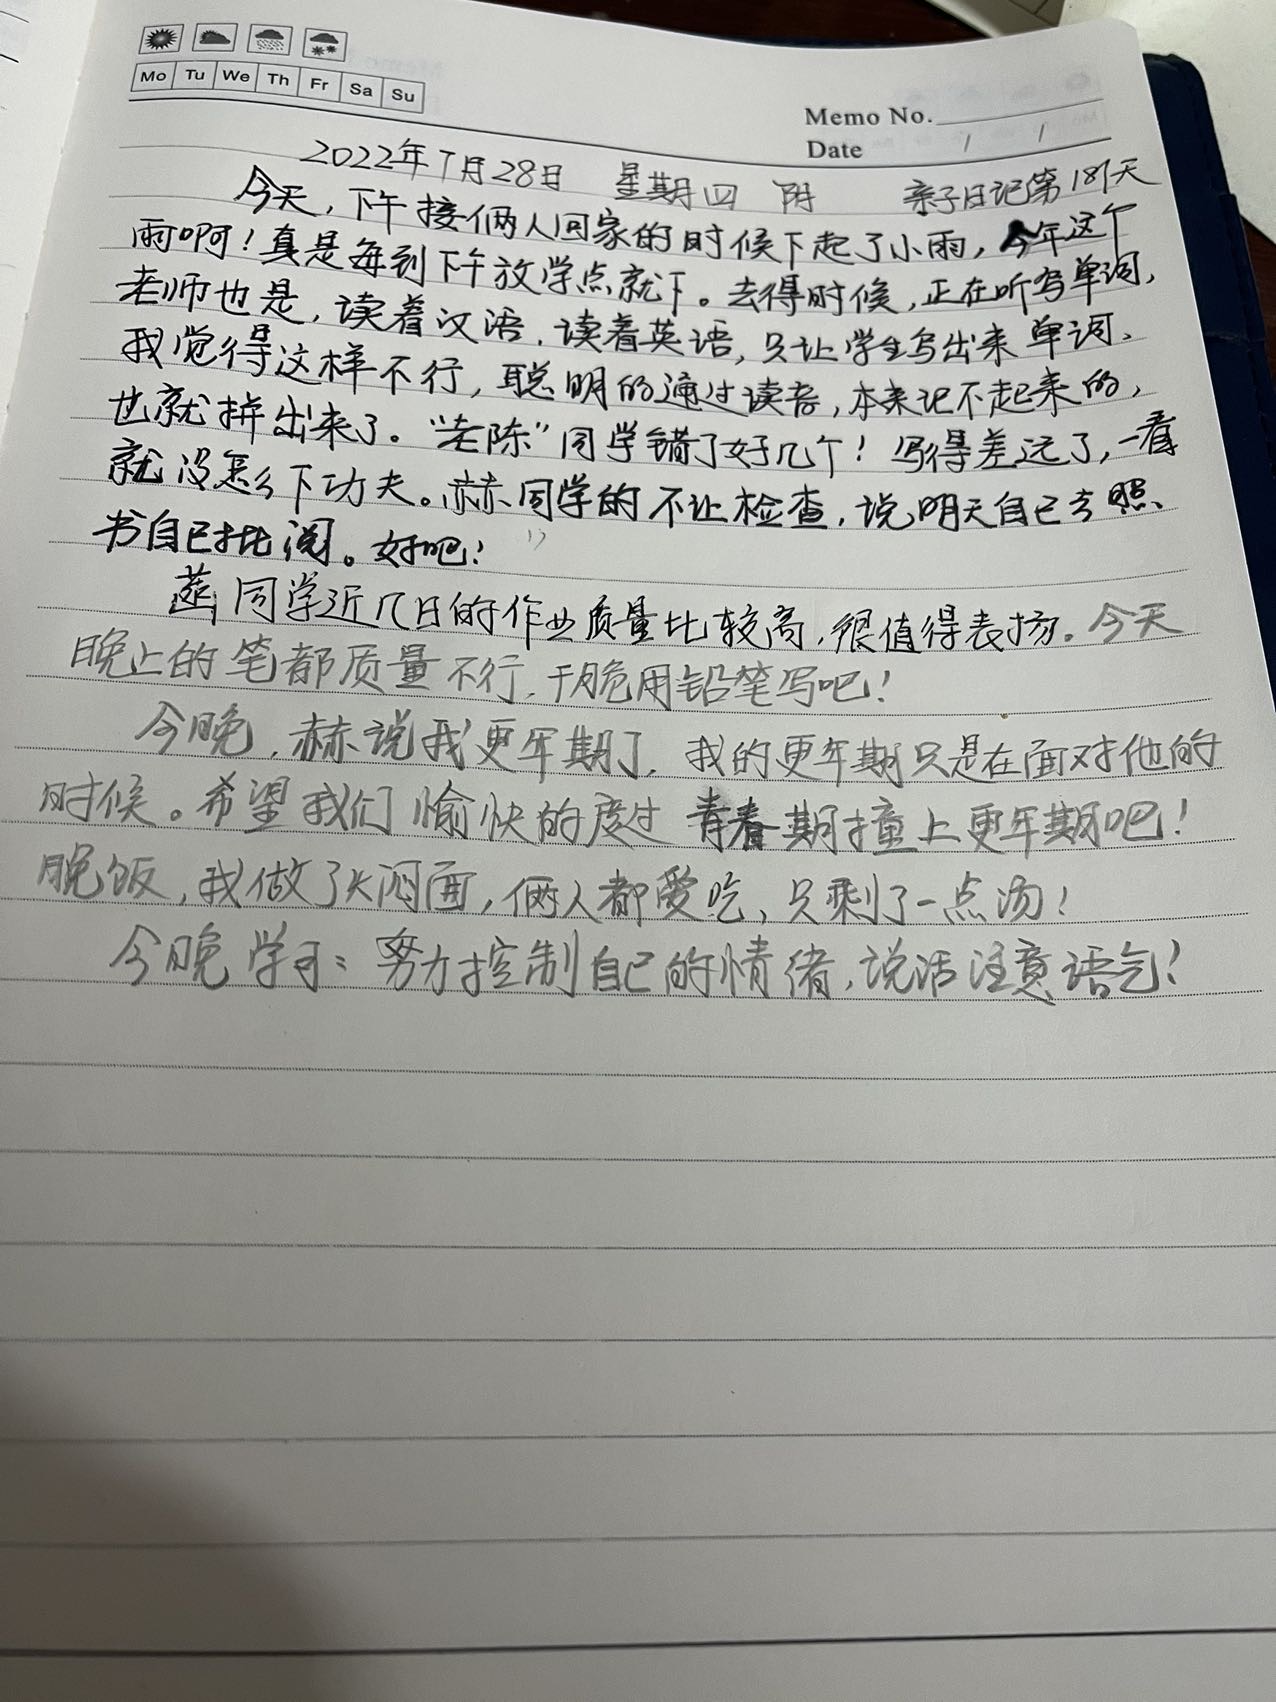 Mo Tu We Th Fr Sa Su
Memo No.
Date / /
2022年7月28日 星期四 阴 亲子日记第181天
今天,下午接俩人回家的时候下起了小雨,今年这个
雨啊!真是每到下午放学点就下。去得时候,正在听写单词,
老师也是,读着汉语,读着英语,只让学生写出来单词、
我觉得这样不行,聪明的通过读音,本来记不起来的,
也就拼出来了。“老陈”同学错了好几个!写得差远了,一看
就没怎么下功夫。赫同学的不让检查,说明天自己去照、
书自己批阅。好吧!
同学近几日的作业质量比较高,很值得表扬。今天
晚上的笔都质量不行,干脆用铅笔写吧!
今晚,赫说我更年期了,我的更年期只是在面对他的
时候。希望我们愉快的度过青春期撞上更年期吧!
晚饭,我做了大闷面,俩人都爱吃,只剩了一点汤!
今晚学习:努力控制自己的情绪,说话注意语气!